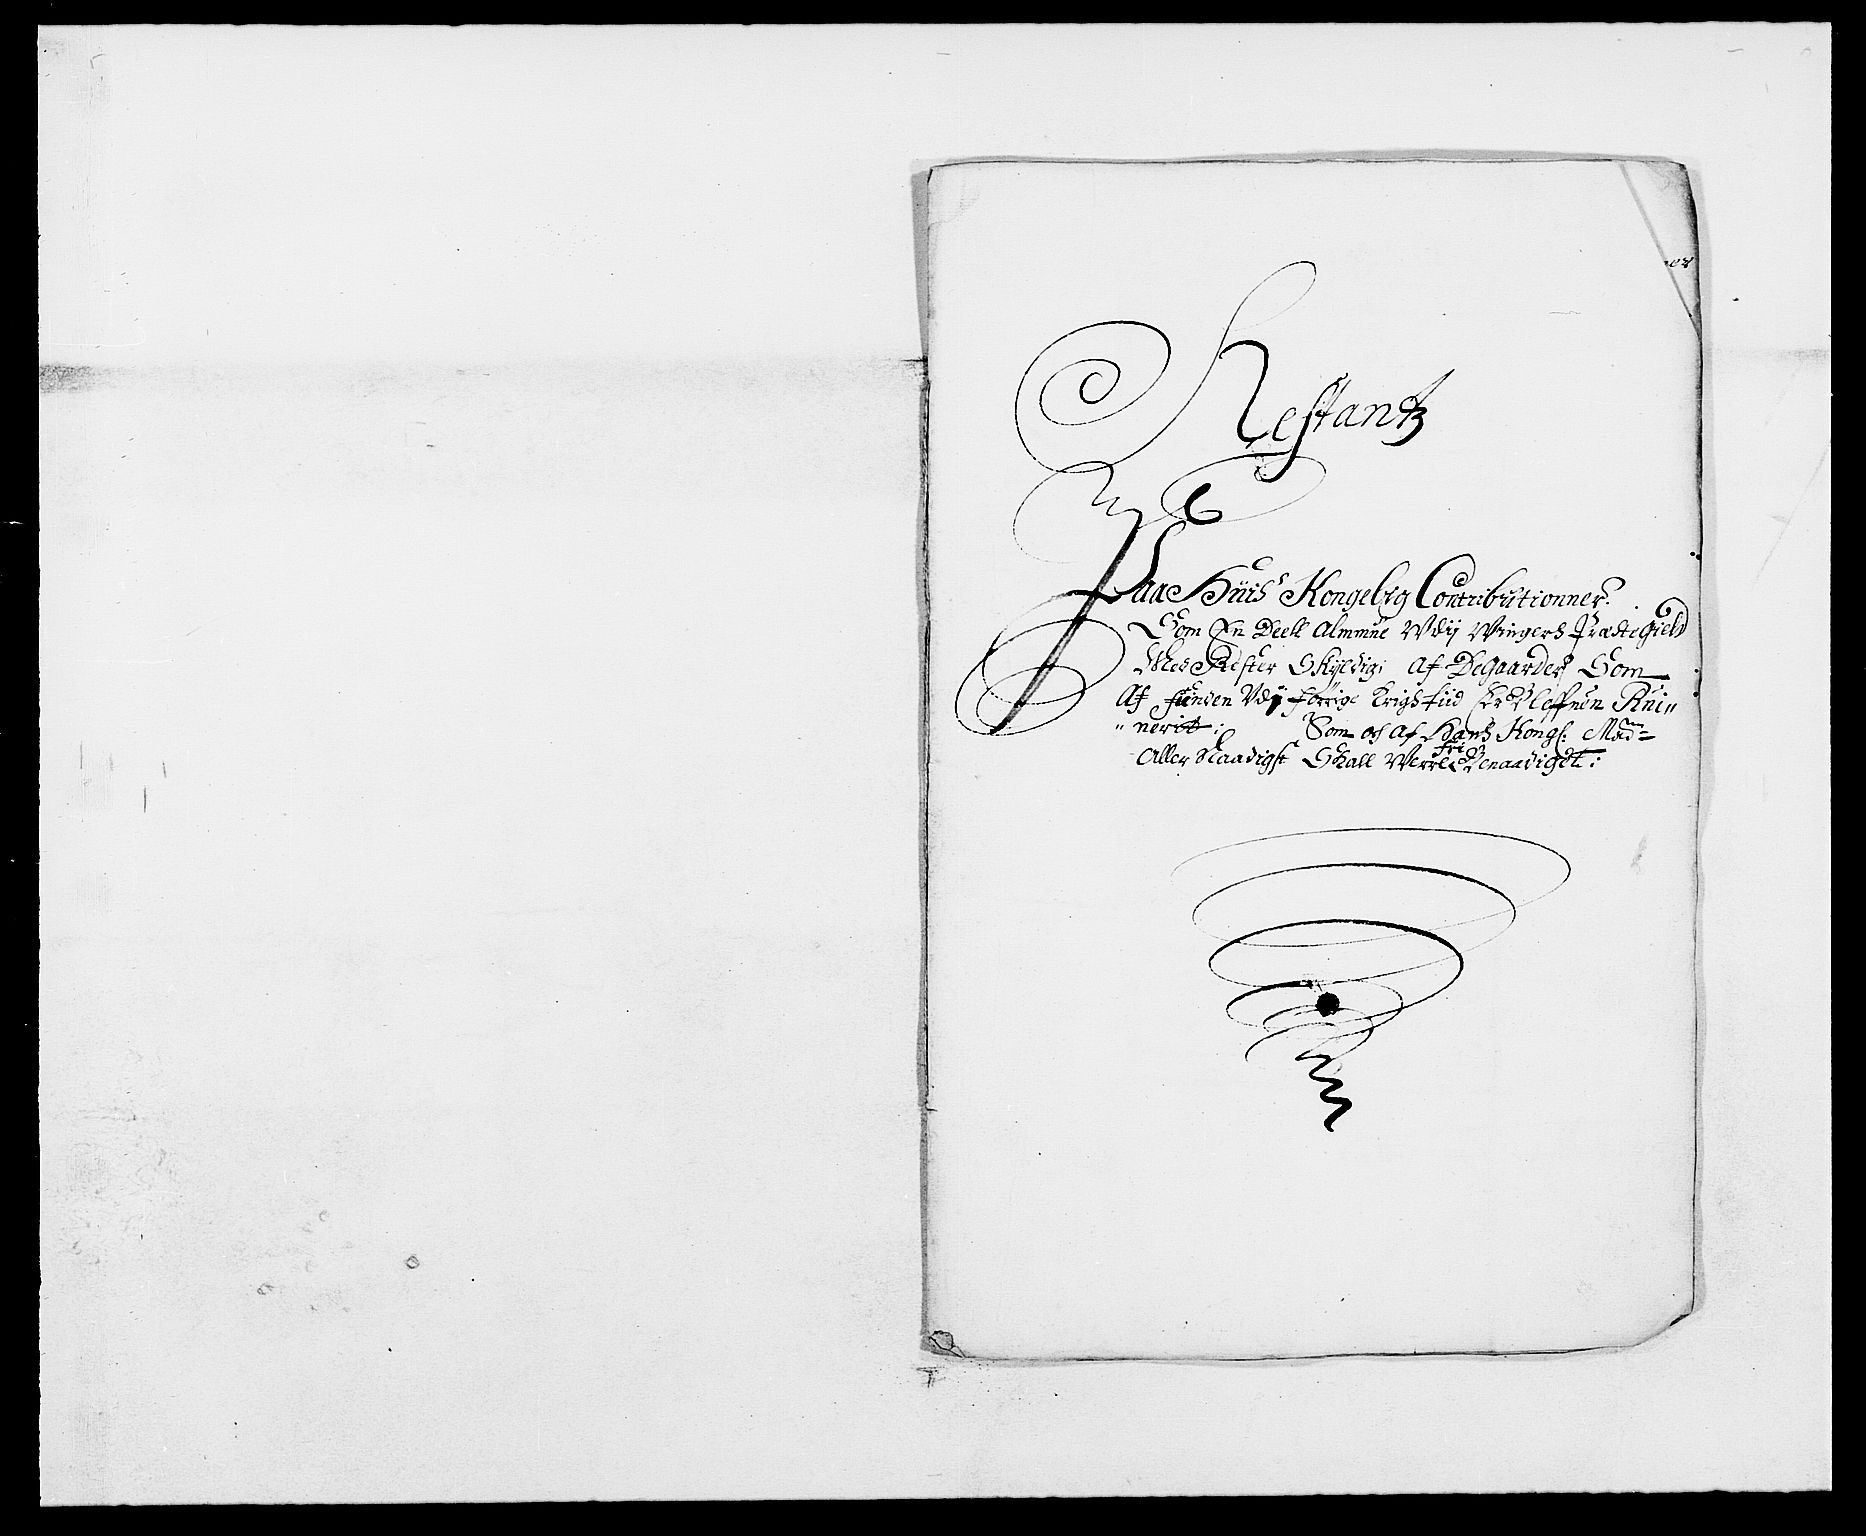 Restantz
Paa Hüis Kongebrg Contributionner:
Som En Deell Almmue Vdj Wingers Præstegield
Med Rester Skyldig: af De gaarder Som
Af fienden Vdj forrige Krigs tiid er bleffuen Rui-
nerit: Som och af Hans Kongl: Maÿ=
Aller Naadigst Skall Werre fri Benaadiget: